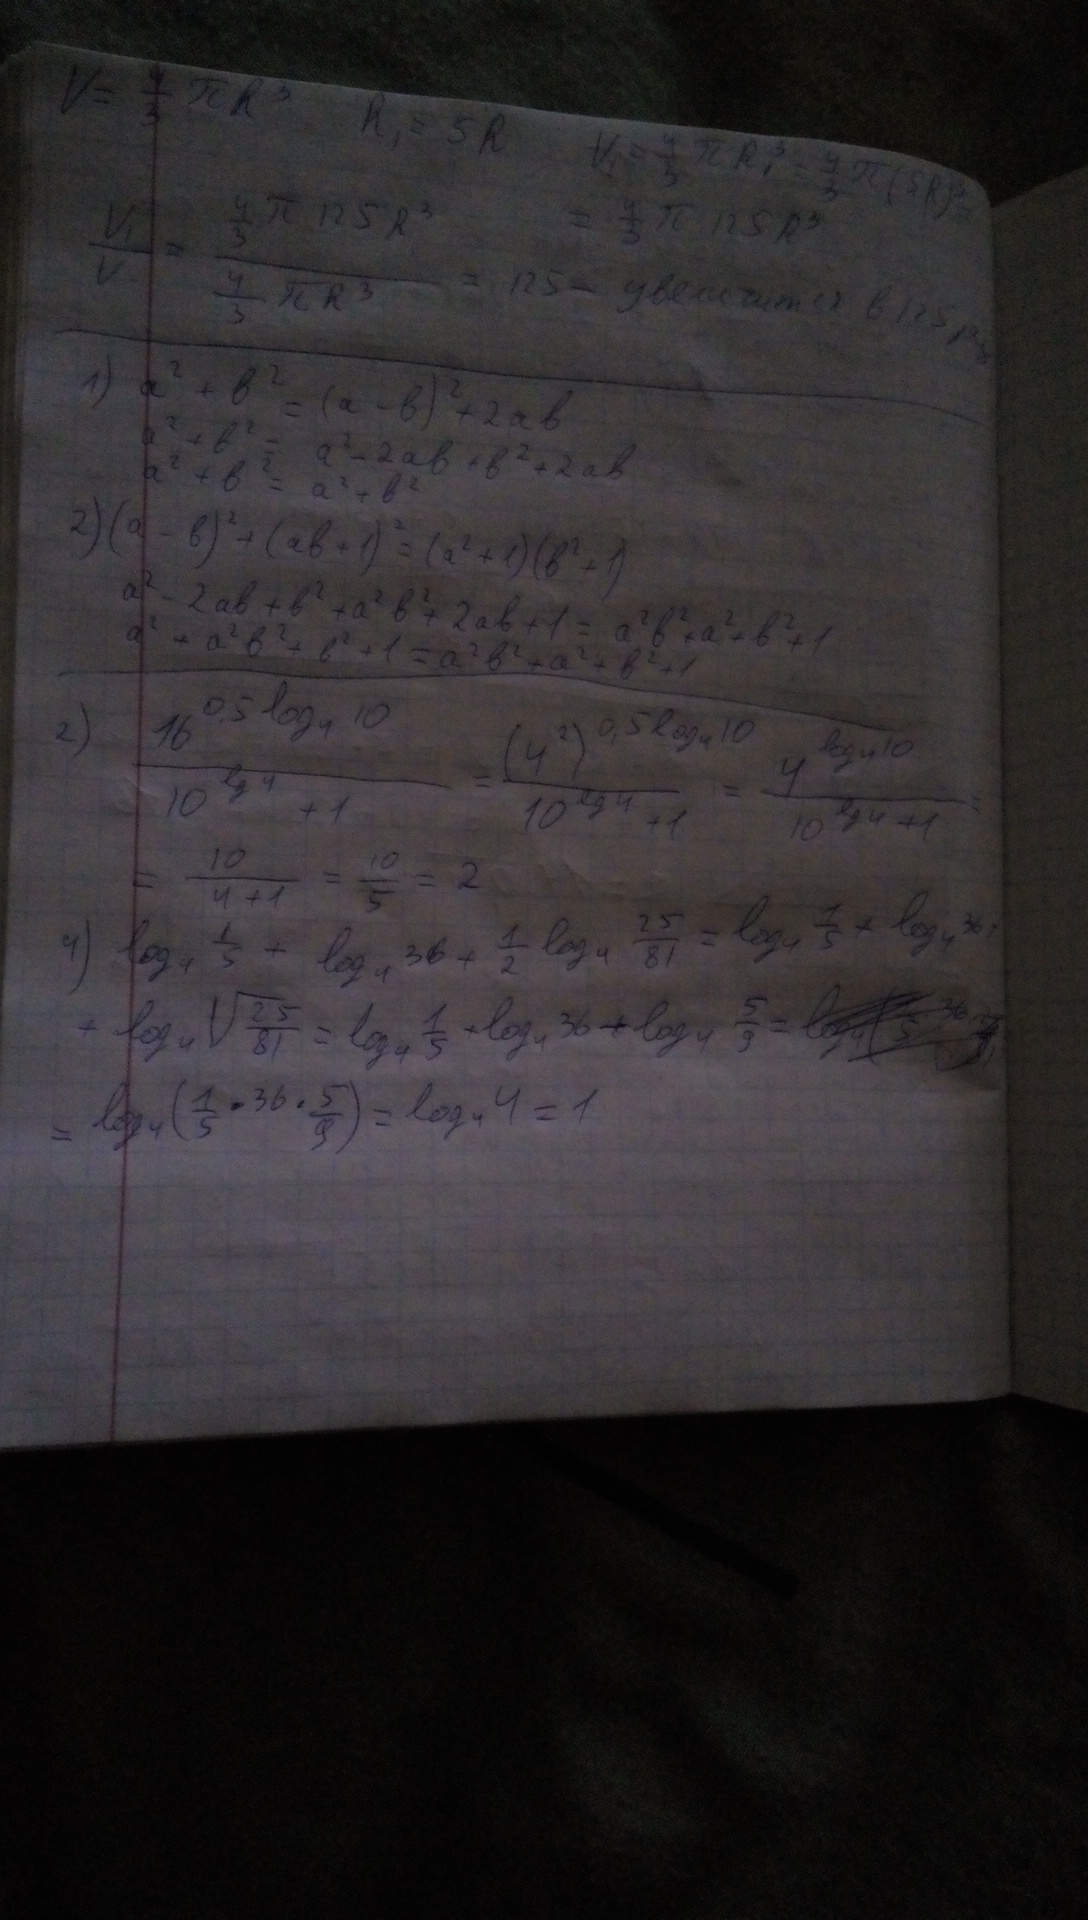 V = 4/3 πR³   R₁ = 5R   V₁ = 4/3 πR₁³ = 4/3 π(5R)³ =
= 4/3 π 125R³
V₁/V = (4/3 π 125R³)/(4/3 πR³) = 125 – увеличится в 125 раз
1) a² + b² = (a - b)² + 2ab
a² + b² = a² - 2ab + b² + 2ab
a² + b² = a² + b²
2) (a - b)² + (ab + 1)² = (a² + 1)(b² + 1)
a² - 2ab + b² + a²b² + 2ab + 1 = a²b² + a² + b² + 1
a² + a²b² + b² + 1 = a²b² + a² + b² + 1
2) 16^(0,5 log₄ 10)/(10^(lg 4) + 1) = (4²)^(0,5 log₄ 10)/(10^(lg 4) + 1) = 4^(log₄ 10)/(10^(lg 4) + 1) =
= 10/(4+1) = 10/5 = 2
4) log₄ 1/5 + log₄ 36 + 1/2 log₄ 25/81 = log₄ 1/5 + log₄ 36 +
+ log₄ √(25/81) = log₄ 1/5 + log₄ 36 + log₄ 5/9 =
= log₄(1/5 · 36 · 5/9) = log₄ 4 = 1